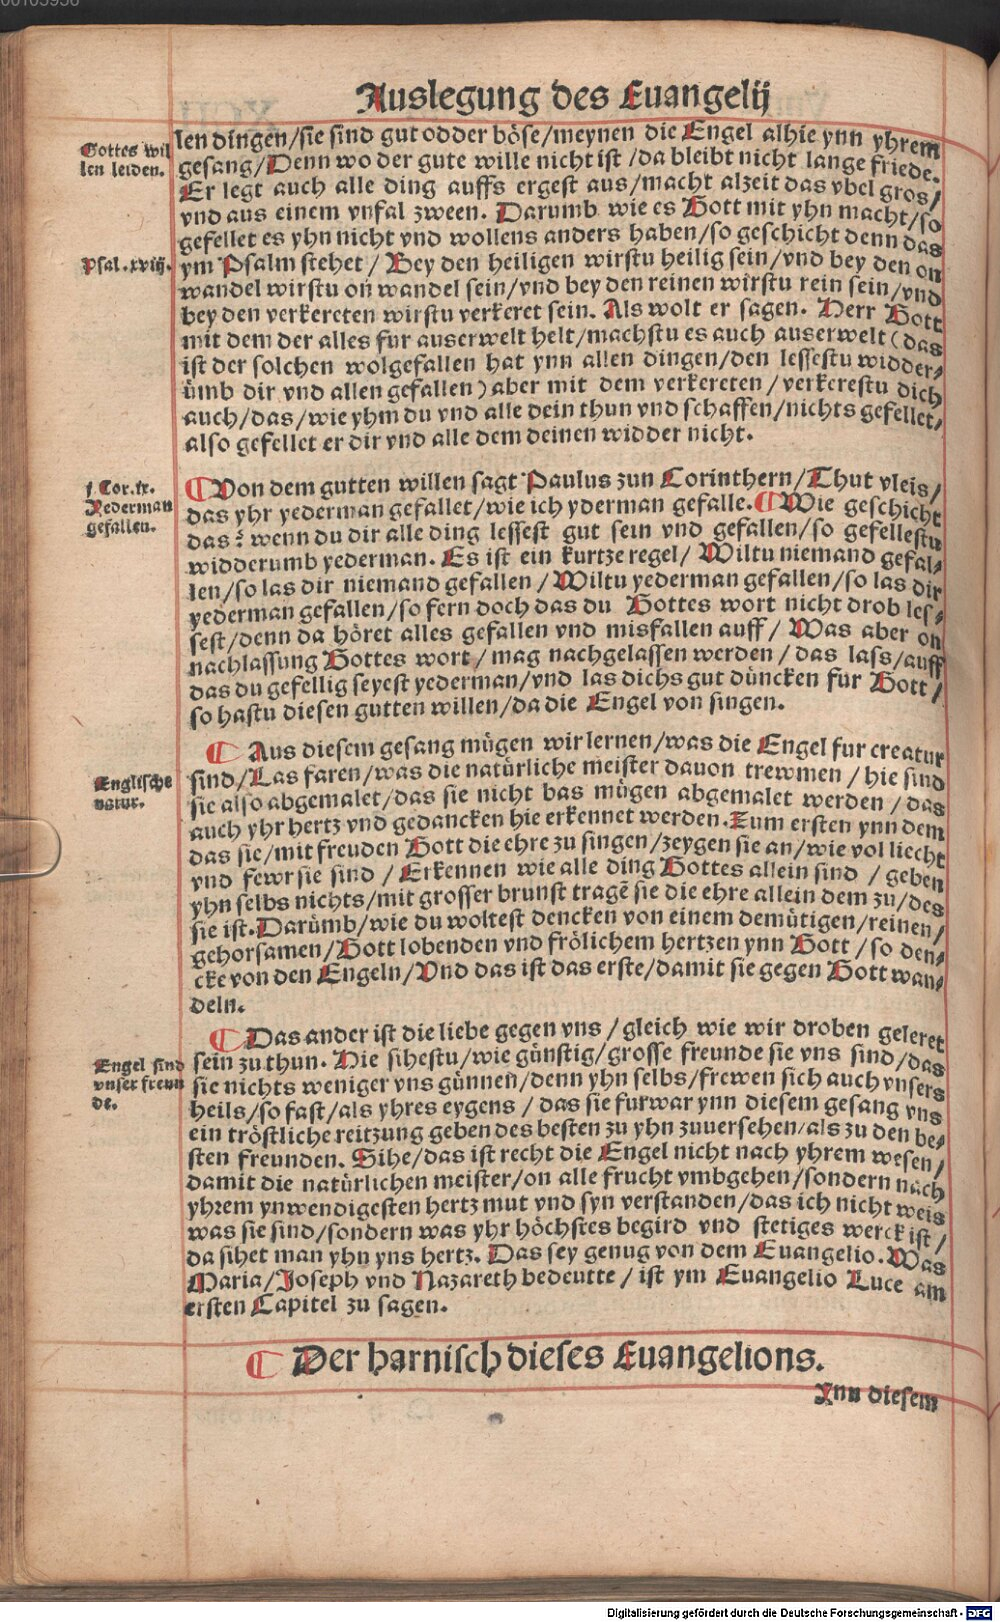 00105936
Auslegung des Euangelij
Gottes wil
len leiden.
len dingen/sie sind gut odder böse/meynen die Engel alhie ynn yhrem
gesang/Denn wo der gute wille nicht ist/da bleibt nicht lange friede.
Er legt auch alle ding auffs ergest aus/macht alzeit das vbel gros/
vnd aus einem vnfal zween. Darumb wie es Gott mit yhn macht/so
gefellet es yhn nicht vnd wollens anders haben/so geschicht denn das
Psal.xviij.
ym Psalm stehet/Bey den heiligen wirstu heilig sein/vnd bey den on
wandel wirstu on wandel sein/vnd bey den reinen wirstu rein sein/vnd
bey den verkereten wirstu verkeret sein. Als wolt er sagen. Herr Gott
mit dem der alles fur auserwelt helt/machstu es auch auserwelt (das
ist der solchen wolgefallen hat ynn allen dingen/den lessestu widder/
ümb dir vnd allen gefallen) aber mit dem verkereten/verkerestu dich
auch/das/wie yhm du vnd alle dein thun vnd schaffen/nichts gefellet/
also gefellet er dir vnd alle dem deinen widder nicht.
j Cor.ix.
Yederman
gefallen.
¶Von dem gutten willen sagt Paulus zun Corinthern/Thut vleis/
das yhr yederman gefallet/wie ich yderman gefalle.¶Wie geschicht
das? wenn du dir alle ding lessest gut sein vnd gefallen/so gefellestu
widderumb yederman. Es ist ein kurtze regel/Wiltu niemand gefal/
len/so las dir niemand gefallen/Wiltu yederman gefallen/so las dir
yederman gefallen/so fern doch das du Gottes wort nicht drob les/
sest/denn da höret alles gefallen vnd misfallen auff/Was aber on
nachlassung Gottes wort/mag nachgelassen werden/das lass/auff
das du gefellig seyest yederman/vnd las dichs gut düncken fur Gott/
so hastu diesen gutten willen/da die Engel von singen.
¶ Aus diesem gesang mügen wir lernen/was die Engel fur creatur
Englische
natur.
sind/Las faren/was die natürliche meister dauon trewmen/hie sind
sie also abgemalet/das sie nicht bas mügen abgemalet werden/das
auch yhr hertz vnd gedancken hie erkennet werden. Zum ersten ynn dem
das sie/mit freuden Gott die ehre zu singen/zeygen sie an/wie vol liecht
vnd fewr sie sind/Erkennen wie alle ding Gottes allein sind/geben
yhn selbs nichts/mit grosser brunst tragē sie die ehre allein dem zu/des
sie ist. Darümb/wie du woltest dencken von einem demütigen/reinen/
gehorsamen/Gott lobenden vnd frölichem hertzen ynn Gott/so den/
cke von den Engeln/Vnd das ist das erste/damit sie gegen Gott wan/
deln.
¶ Das ander ist die liebe gegen vns/gleich wie wir droben geleret
Engel sind
vnser freun
de.
sein zu thun. Hie sihestu/wie günstig/grosse freunde sie vns sind/das
sie nichts weniger vns günnen/denn yhn selbs/frewen sich auch vnsers
heils/so fast/als yhres eygens/das sie furwar ynn diesem gesang vns
ein tröstliche reitzung geben des besten zu yhn zuuersehen/als zu den be/
sten freunden. Sihe/das ist recht die Engel nicht nach yhrem wesen/
damit die natürlichen meister/on alle frucht vmbgehen/sondern nach
yhrem ynwendigesten hertz mut vnd syn verstanden/das ich nicht weis
was sie sind/sondern was yhr höchstes begird vnd stetiges werck ist/
da sihet man yhn yns hertz. Das sey genug von dem Euangelio. Was
Maria/Joseph vnd Nazareth bedeutte/ist ym Euangelio Luce am
ersten Capitel zu sagen.
¶ Der harnisch dieses Euangelions.
Ynn diesem
Digitalisierung gefördert durch die Deutsche Forschungsgemeinschaft - DFG